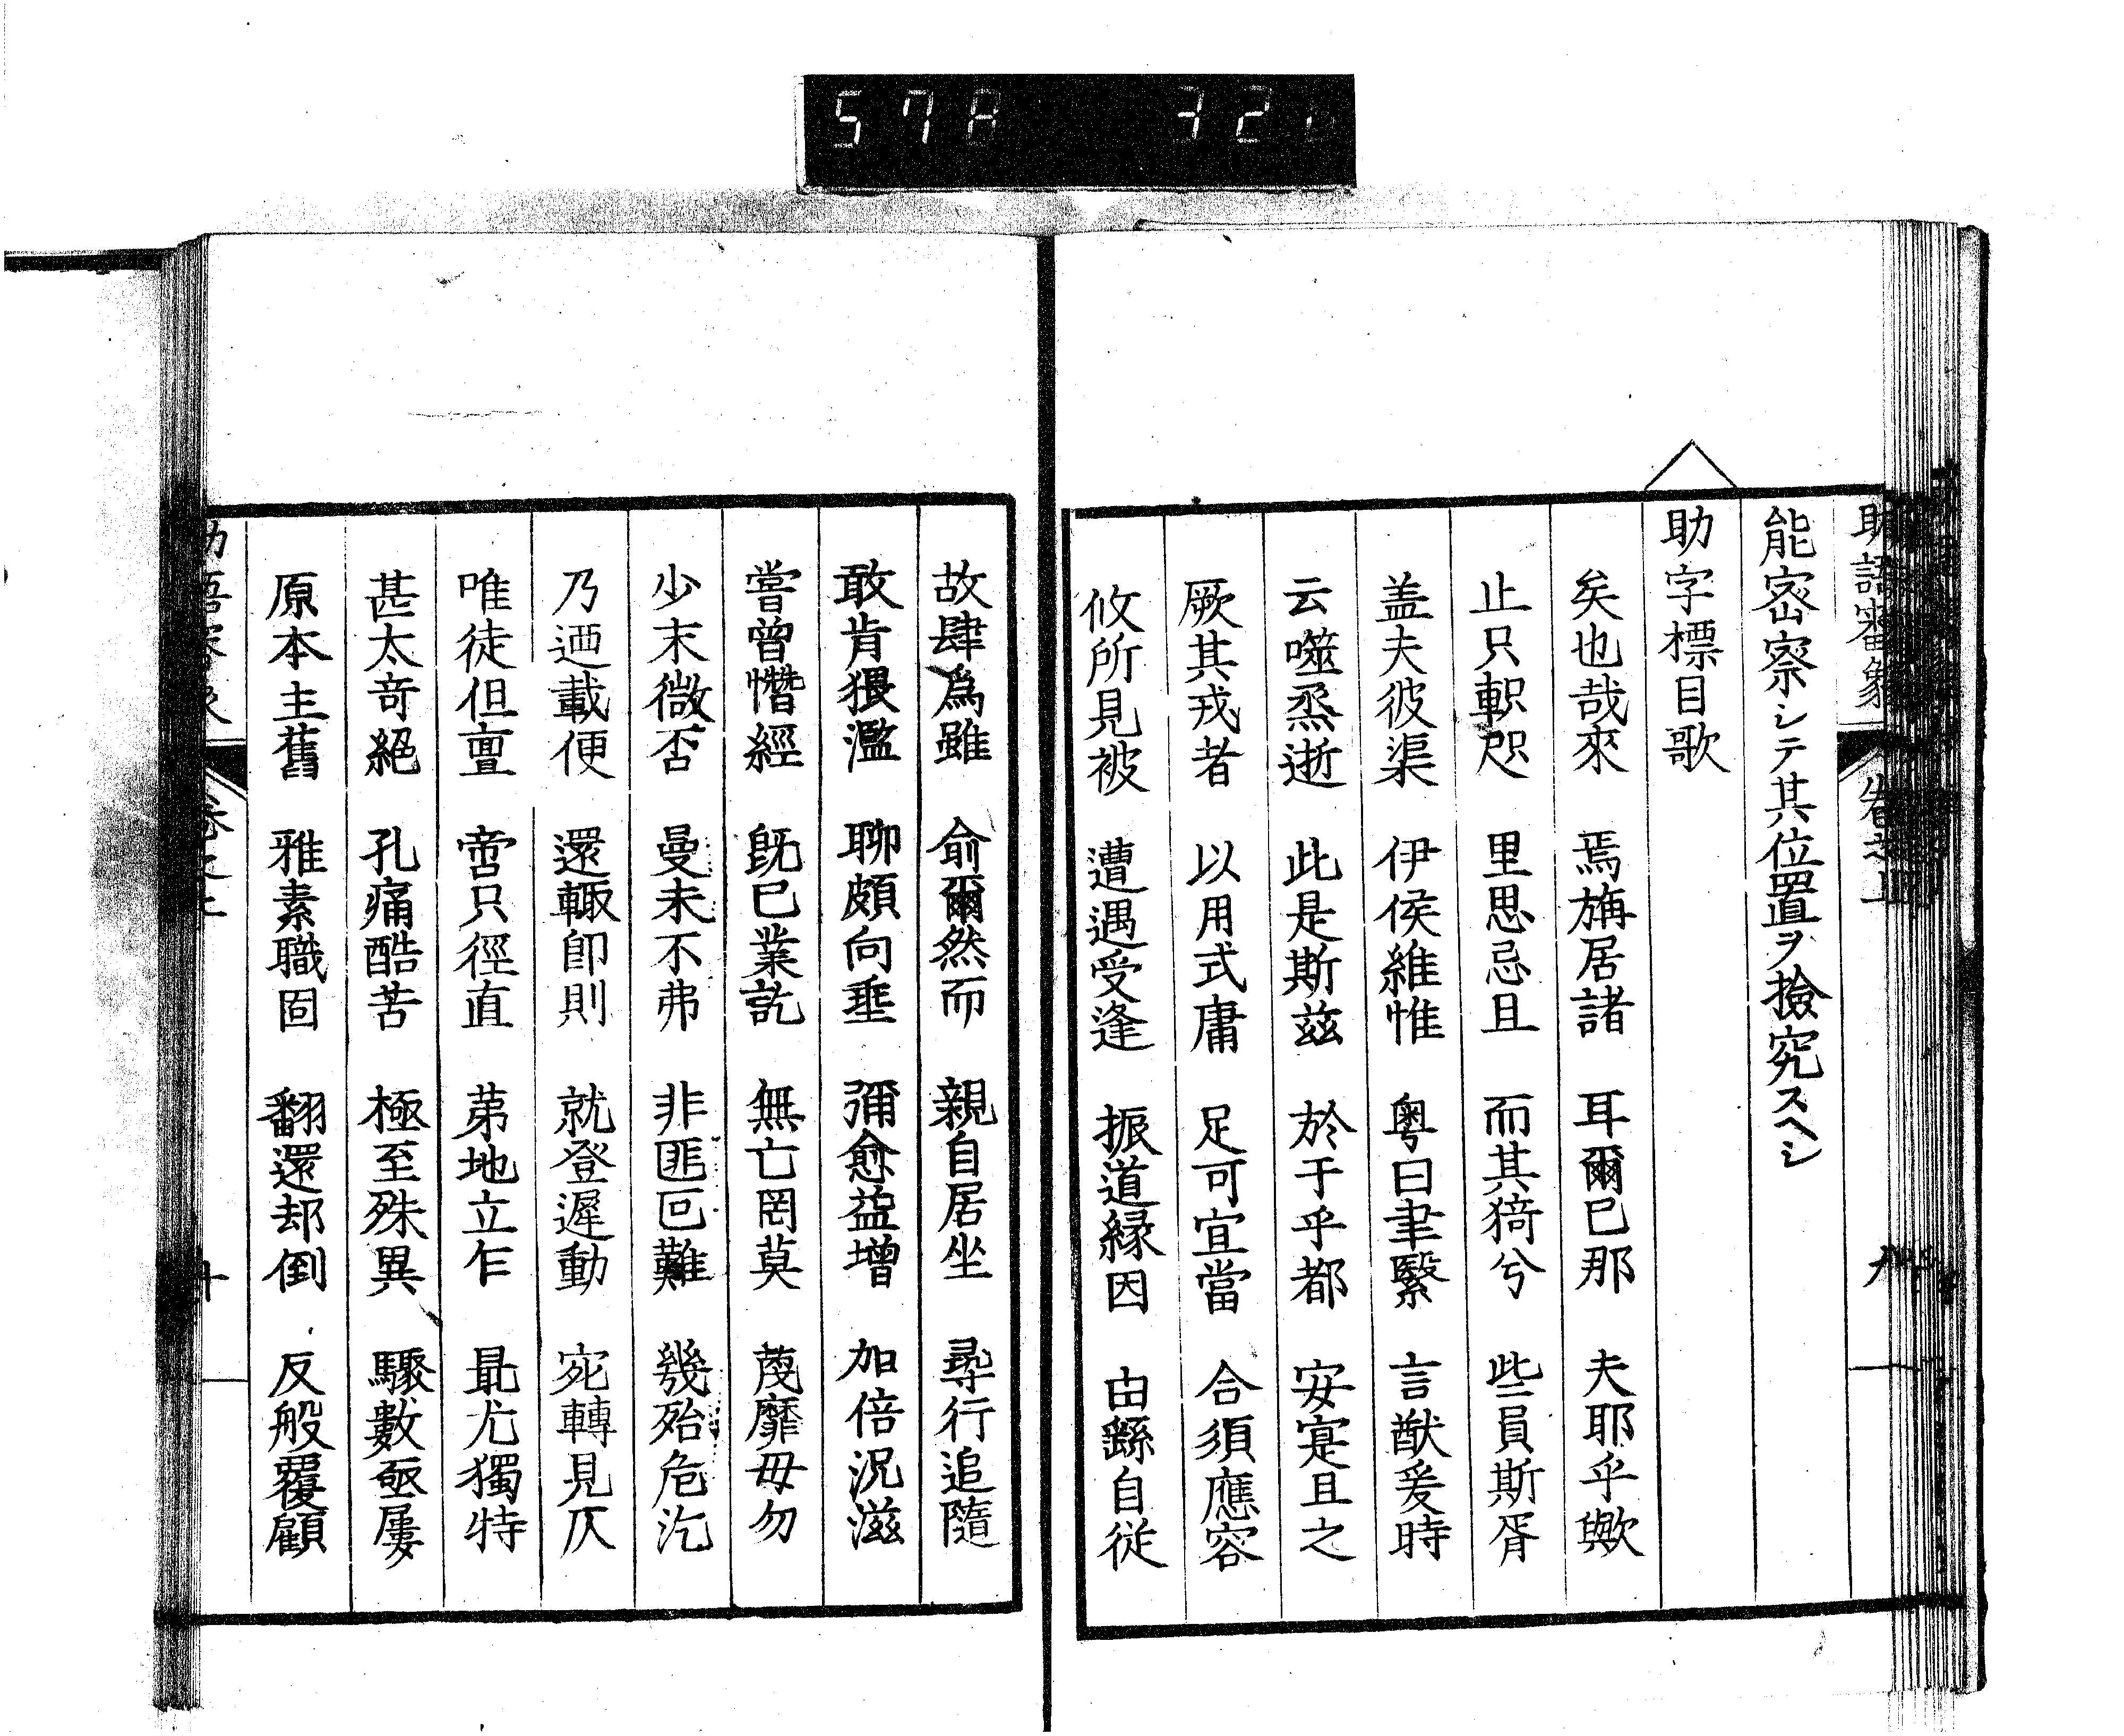 57A 321
助語審象 卷之上 九
能密察シテ其位置ヲ撿究スヘシ
助字標目歌
矣也哉來 焉旃居諸 耳爾已那 夫耶乎歟
止只軹咫 里思忌且 而其猗兮 些員斯胥
盖夫彼渠 伊侯維惟 粤曰聿繄 言猷爰時
云噬烝逝 此是斯兹 於于乎都 安寔且之
厥其戎者 以用式庸 足可宜當 合須應容
攸所見被 遭遇受逢 振道縁因 由繇自從
故肆爲雖 俞爾然而 親自居坐 尋行追隨
敢肯猥濫 聊頗向垂 彌愈益增 加倍況滋
嘗曾憯經 旣已業訖 無亡罔莫 蔑靡毋勿
少末微否 曼未不弗 非匪叵難 幾殆危汔
乃迺載便 還輙卽則 就登遲動 宛轉見仄
唯徒但亶 啻只徑直 苐地立乍 最尤獨特
甚太奇絕 孔痛酷苦 極至殊異 驟數亟屢
原本主舊 雅素職固 翻還却倒 反般覆顧
助語審象 卷之上 十